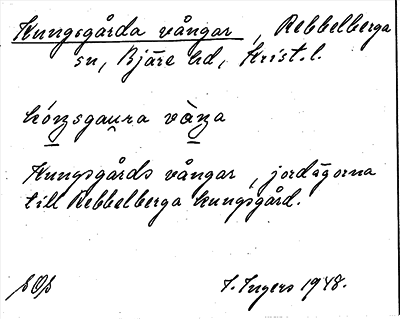 Kungsgårda vångar, Rebbelberga
sn, Bjäre hd, Krist.l.
kóŋsgaura vàŋa
Kungsgårds vångar, jordägorna
till Rebbelberga kungsgård.
I. Ingers 1948.